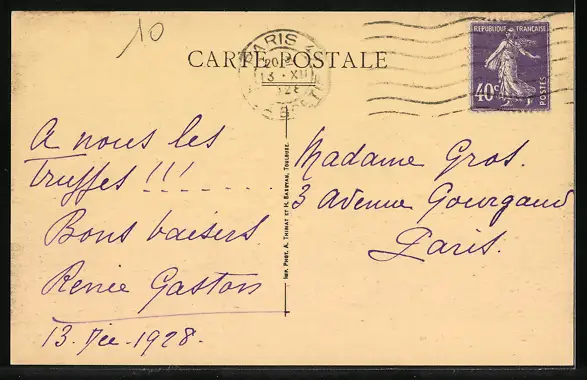 10
CARTE POSTALE
PARIS
13 · XII
REPUBLIQUE FRANÇAISE
40c
POSTES
A nous les
Truffes !!!
Bons baisers
Renée Gaston
13. Déc. 1928.
Madame Gros.
3 Avenue Gourgaud
Paris.
IMP. PHOT. A. THIRIAT ET H. BASUYAU, TOULOUSE.